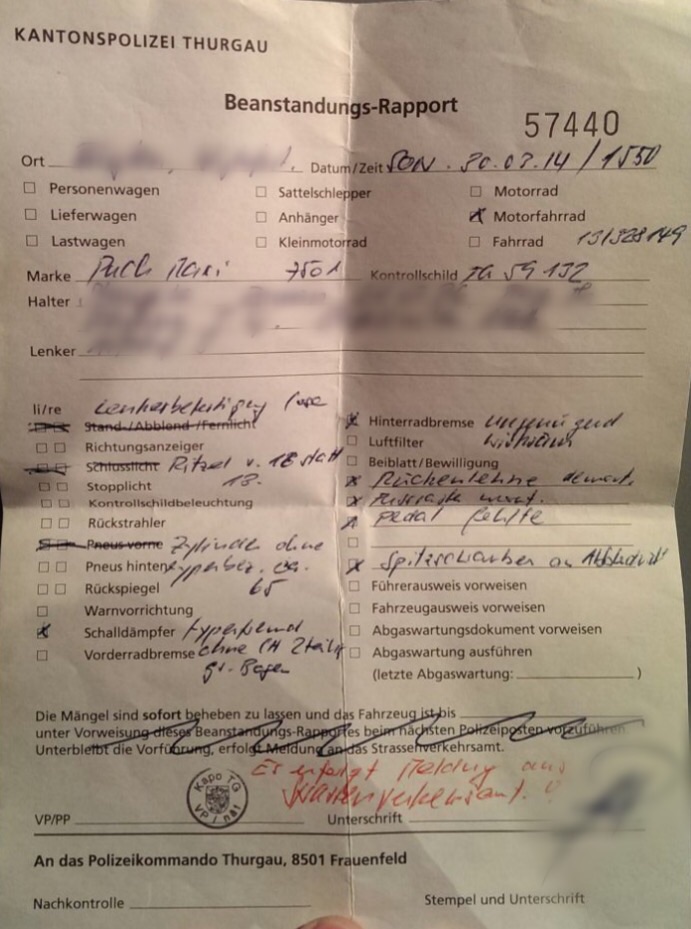 KANTONSPOLIZEI THURGAU
Beanstandungs-Rapport
57440
Ort Datum/Zeit SON. 30.03.14 / 1550
☐ Personenwagen ☐ Sattelschlepper ☐ Motorrad
☐ Lieferwagen ☐ Anhänger ☒ Motorfahrrad
☐ Lastwagen ☐ Kleinmotorrad ☐ Fahrrad
Marke Puch Maxi Kontrollschild TG 59 132
Halter
Lenker
li/re Lenkerbefestigung lose
Stand-/Abblend-/Fernlicht ☒ Hinterradbremse ungenügend
☐ ☐ Richtungsanzeiger ☐ Luftfilter wirksam
Schlusslicht Ritzel v. 18 statt ☐ Beiblatt/Bewilligung
☐ ☐ Stopplicht 13. ☒ Rückenlehne demont.
☐ ☐ Kontrollschildbeleuchtung ☒ Fussraste mont.
☐ ☐ Rückstrahler ☒ Pedal fehlte
Pneus vorne Zylinder ohne ☐
☐ ☐ Pneus hinten ☒ Spitzschrauben an
☐ ☐ Rückspiegel 65 ☐ Führerausweis vorweisen
☐ Warnvorrichtung ☐ Fahrzeugausweis vorweisen
☒ Schalldämpfer typenfremd ☐ Abgaswartungsdokument vorweisen
☐ Vorderradbremse ohne CH 2teilig ☐ Abgaswartung ausführen
gr. Bogen (letzte Abgaswartung: )
Die Mängel sind sofort beheben zu lassen und das Fahrzeug ist bis
unter Vorweisung dieses Beanstandungs-Rapportes beim nächsten Polizeiposten vorzuführen.
Unterbleibt die Vorführung, erfolgt Meldung an das Strassenverkehrsamt.
Es erfolgt Meldung ans
Strassenverkehrsamt. !
Kapo TG
VP / nät
VP/PP Unterschrift
An das Polizeikommando Thurgau, 8501 Frauenfeld
Nachkontrolle Stempel und Unterschrift